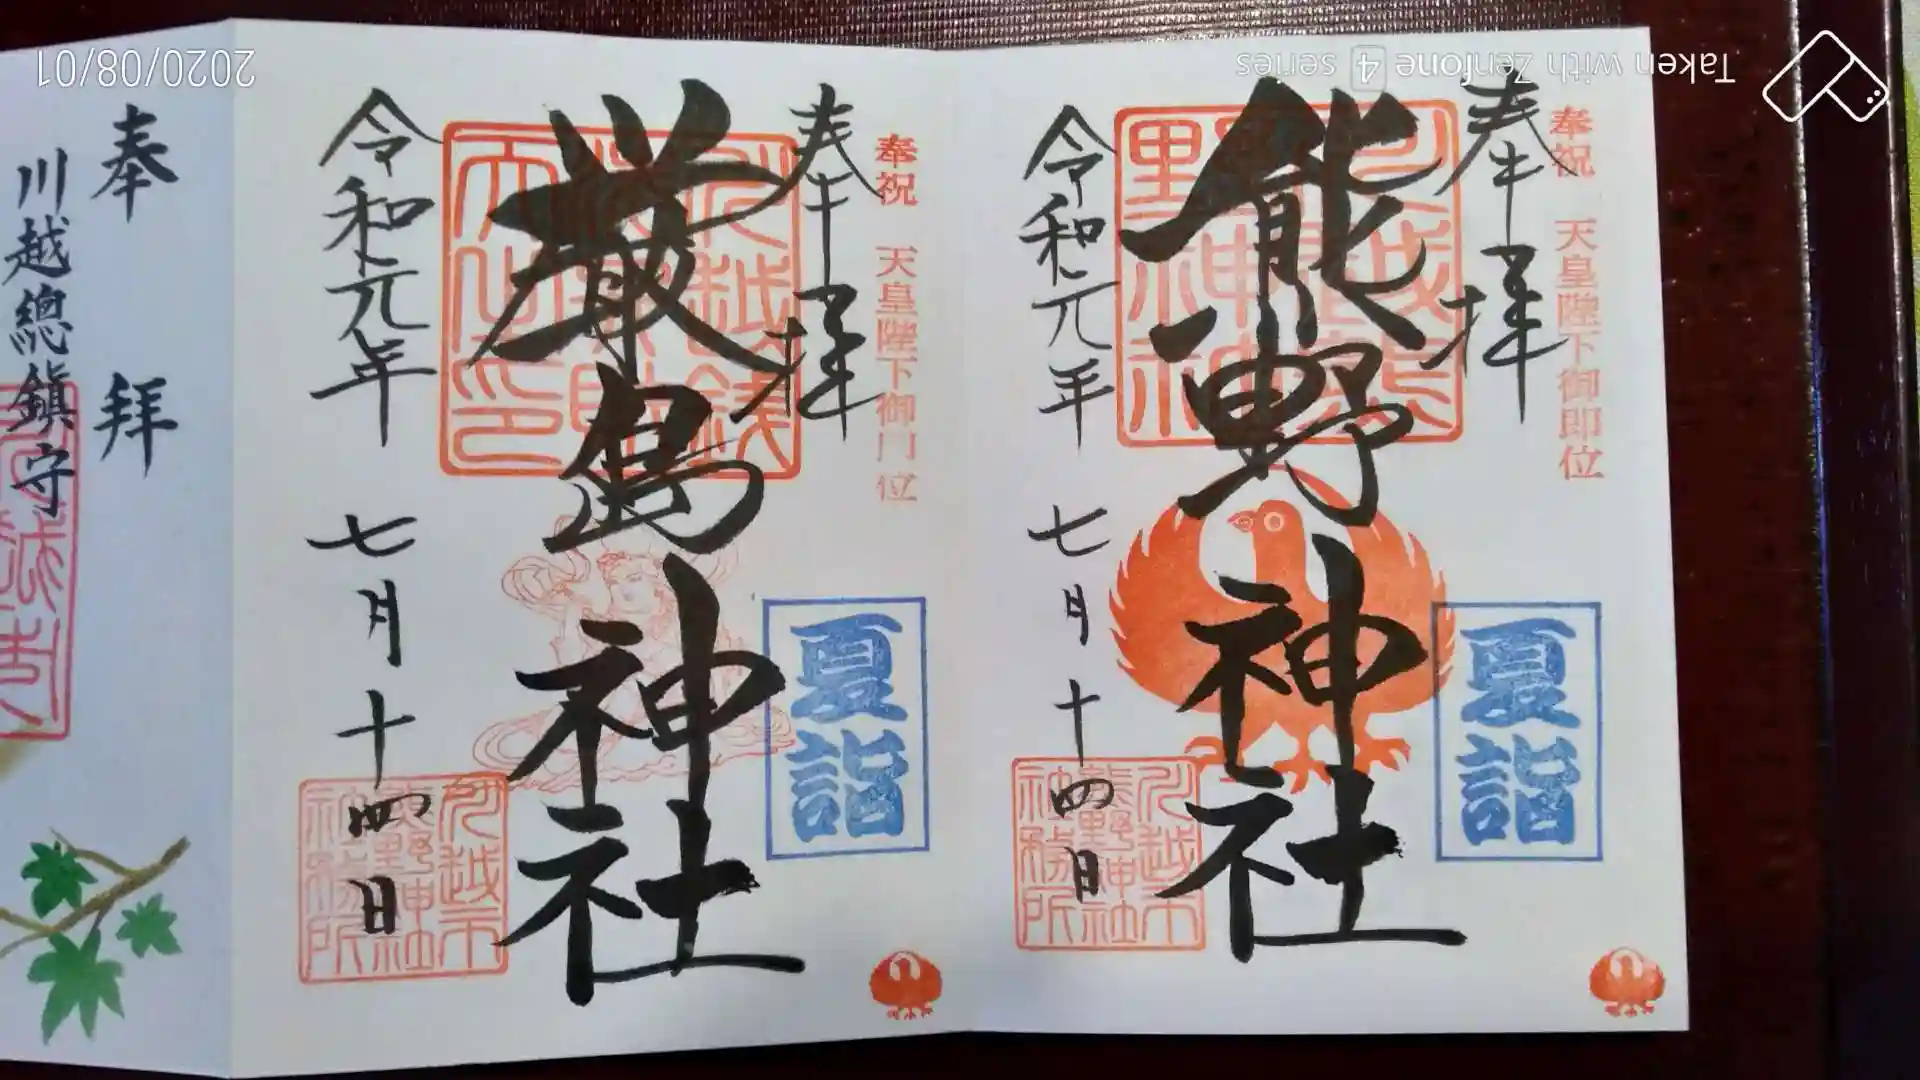 奉拝
奉祝 天皇陛下御即位
熊野神社
夏詣
令和元年 七月十四日
奉拝
奉祝 天皇陛下御即位
厳島神社
夏詣
令和元年 七月十四日
川越市熊野神社社務所
奉拝
川越總鎮守
Taken with Zenfone 4 series
2020/08/01